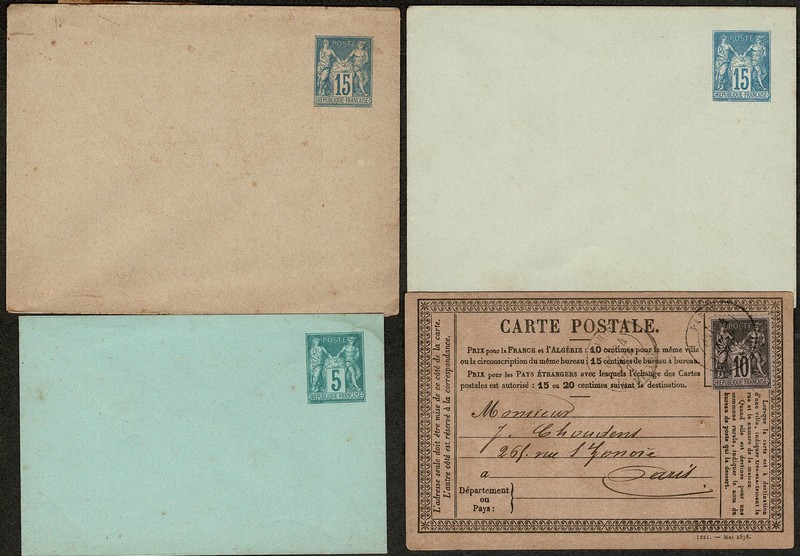 POSTE
15
RÉPUBLIQUE FRANÇAISE
POSTE
15
RÉPUBLIQUE FRANÇAISE
POSTE
5
RÉPUBLIQUE FRANÇAISE
CARTE POSTALE.
PRIX pour la FRANCE et l'ALGÉRIE : 10 centimes pour la même ville
ou la circonscription du même bureau ; 15 centimes de bureau à bureau.
PRIX pour les PAYS ÉTRANGERS avec lesquels l'échange des Cartes
postales est autorisé : 15 ou 20 centimes suivant la destination.
Monsieur
J. Choudens
265 rue St Honoré
à Paris.
Département
ou
Pays :
L'adresse seule doit être mise de ce côté de la carte.
L'autre côté est réservé à la correspondance.
POSTE
10
RÉPUBLIQUE FRANÇAISE
Lorsque la carte est à destination
d'une ville, indiquer très-exactement la
rue et le numéro de la maison.
Quand elle est destinée pour une
commune rurale, indiquer le nom du
bureau de poste qui la dessert.
1221. — Mai 1878.